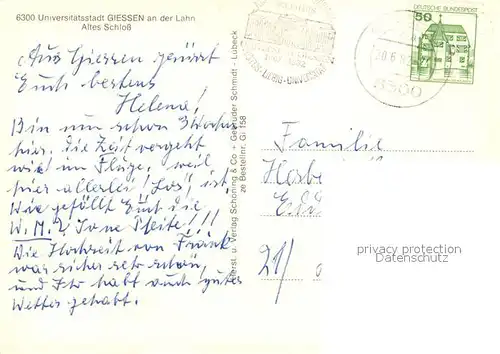 6300 Universitätsstadt GIESSEN an der Lahn
Altes Schloß
Aus Giessen grüsst
Euch bestens
Helene!
Bin nun schon 3 Wochen
hier. Die Zeit vergeht
wie im Fluge, weil
hier allerlei "Los" ist.
Wie gefällt Euch die
W.M.?
Die Hochzeit von Frank
war sicher sehr schön,
und Ihr habt auch gutes
Wetter gehabt.
Herst. u. Verlag Schöning & Co + Gebrüder Schmidt - Lübeck
Bestellnr. Gi 158
JUSTUS-LIEBIG-UNIVERSITÄT
6300
DEUTSCHE BUNDESPOST
50
Familie
21/
privacy protection
Datenschutz